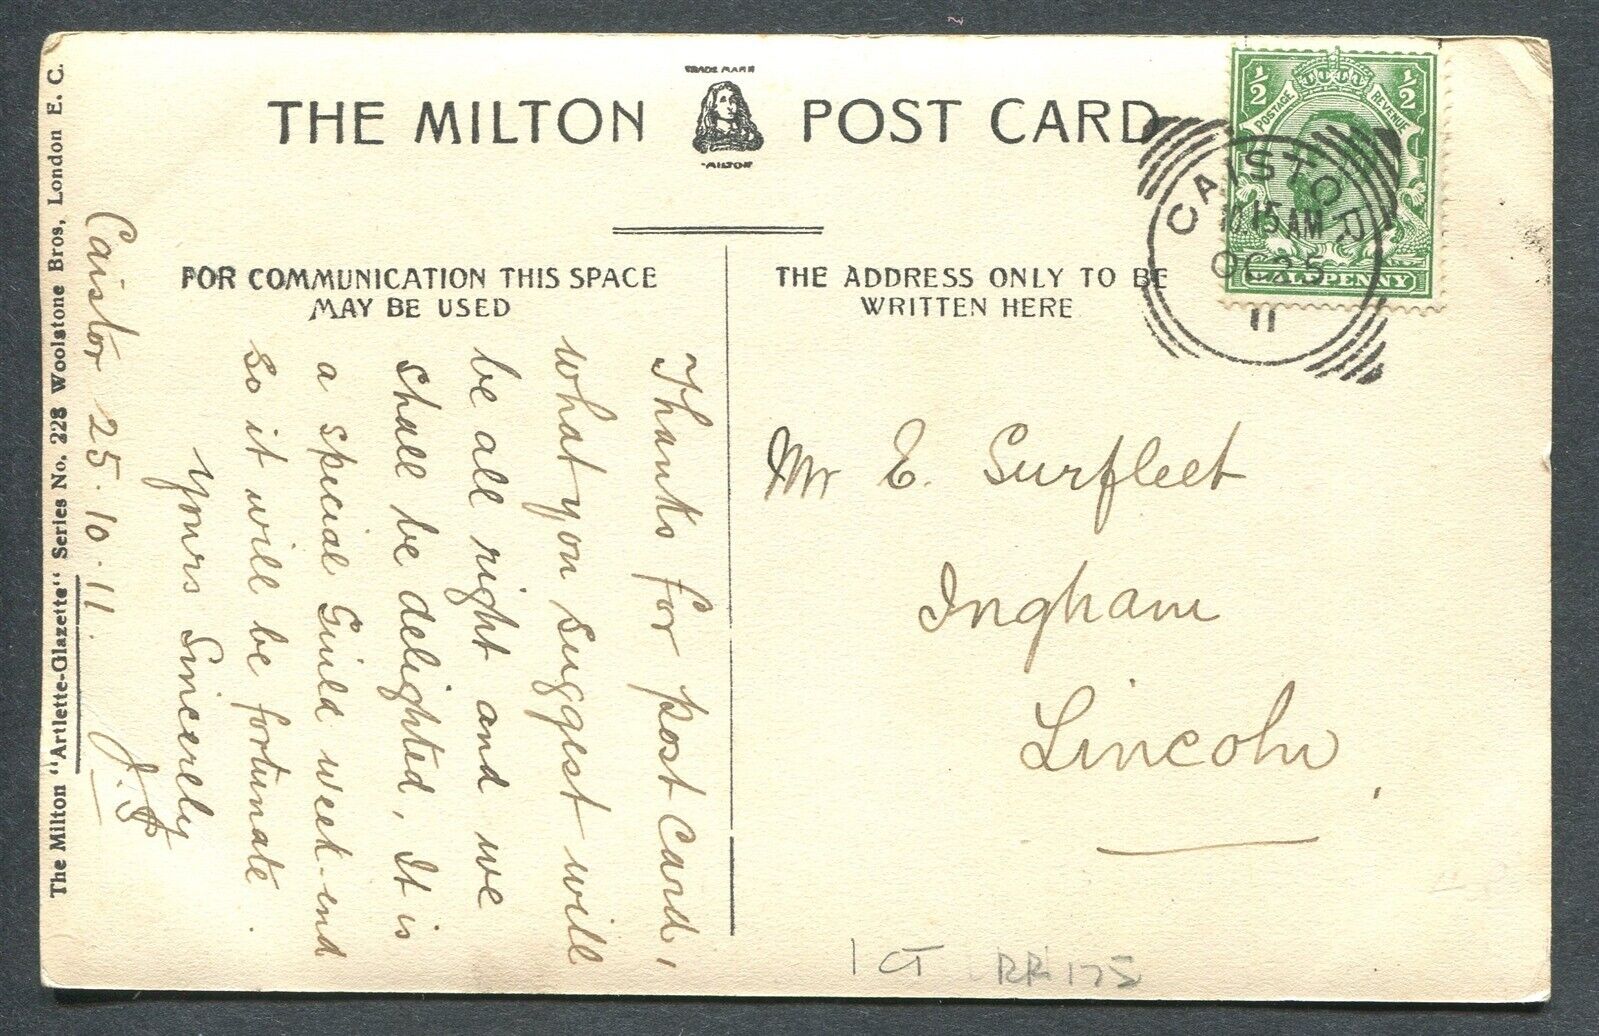 TRADE MARK
THE MILTON POST CARD
"MILTON"
FOR COMMUNICATION THIS SPACE
MAY BE USED
THE ADDRESS ONLY TO BE
WRITTEN HERE
½ ½
POSTAGE REVENUE
HALFPENNY
CAISTOR
10.15 AM
OC 25
11
Mr E. Surfleet
Ingham
Lincoln
Caistor 25.10.11.
Thanks for post card,
what you suggest will
be all right and we
shall be delighted, It is
a special Guild week-end
so it will be fortunate.
Yours Sincerely
The Milton "Artlette-Glazette" Series No. 228 Woolstone Bros, London E. C.
1 CT RR 175